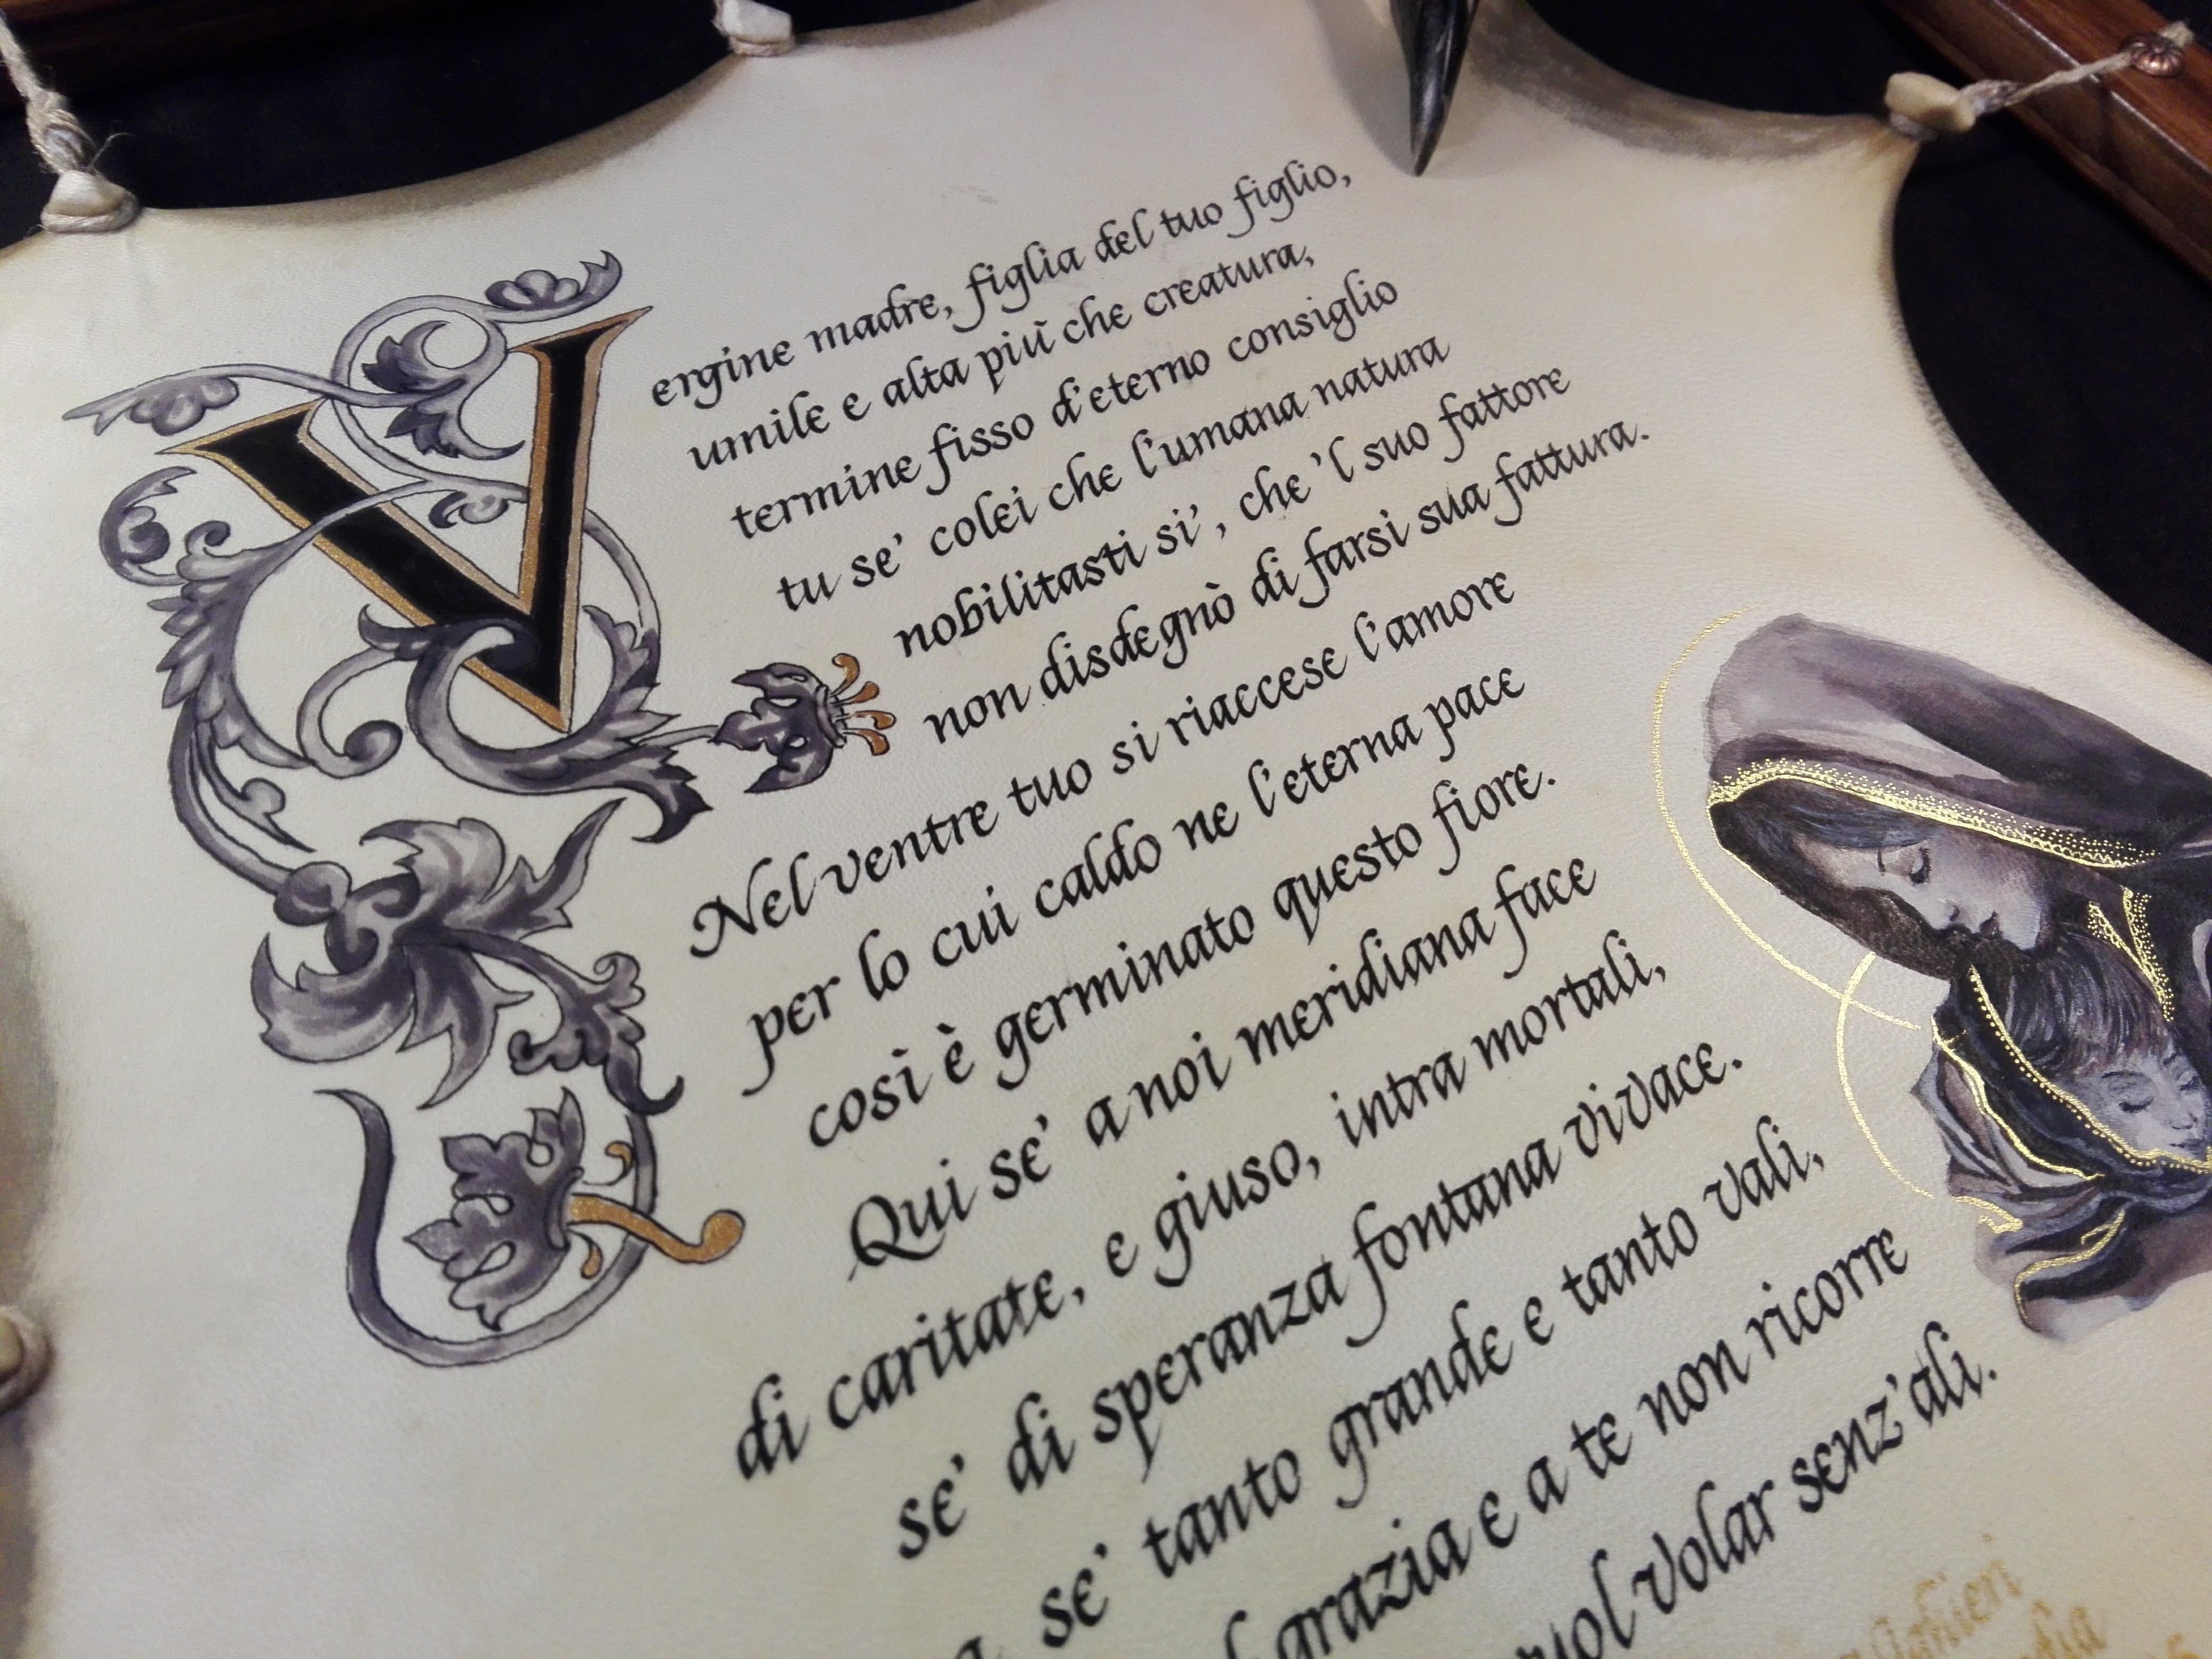 Vergine madre, figlia del tuo figlio,
umile e alta più che creatura,
termine fisso d'eterno consiglio
tu se' colei che l'umana natura
nobilitasti si', che 'l suo fattore
non disdegnò di farsi sua fattura.
Nel ventre tuo si riaccese l'amore
per lo cui caldo ne l'eterna pace
così è germinato questo fiore.
Qui se' a noi meridiana face
di caritate, e giuso, intra mortali,
se' di speranza fontana vivace.
se' tanto grande e tanto vali,
grazia e a te non ricorre
volar senz'ali.